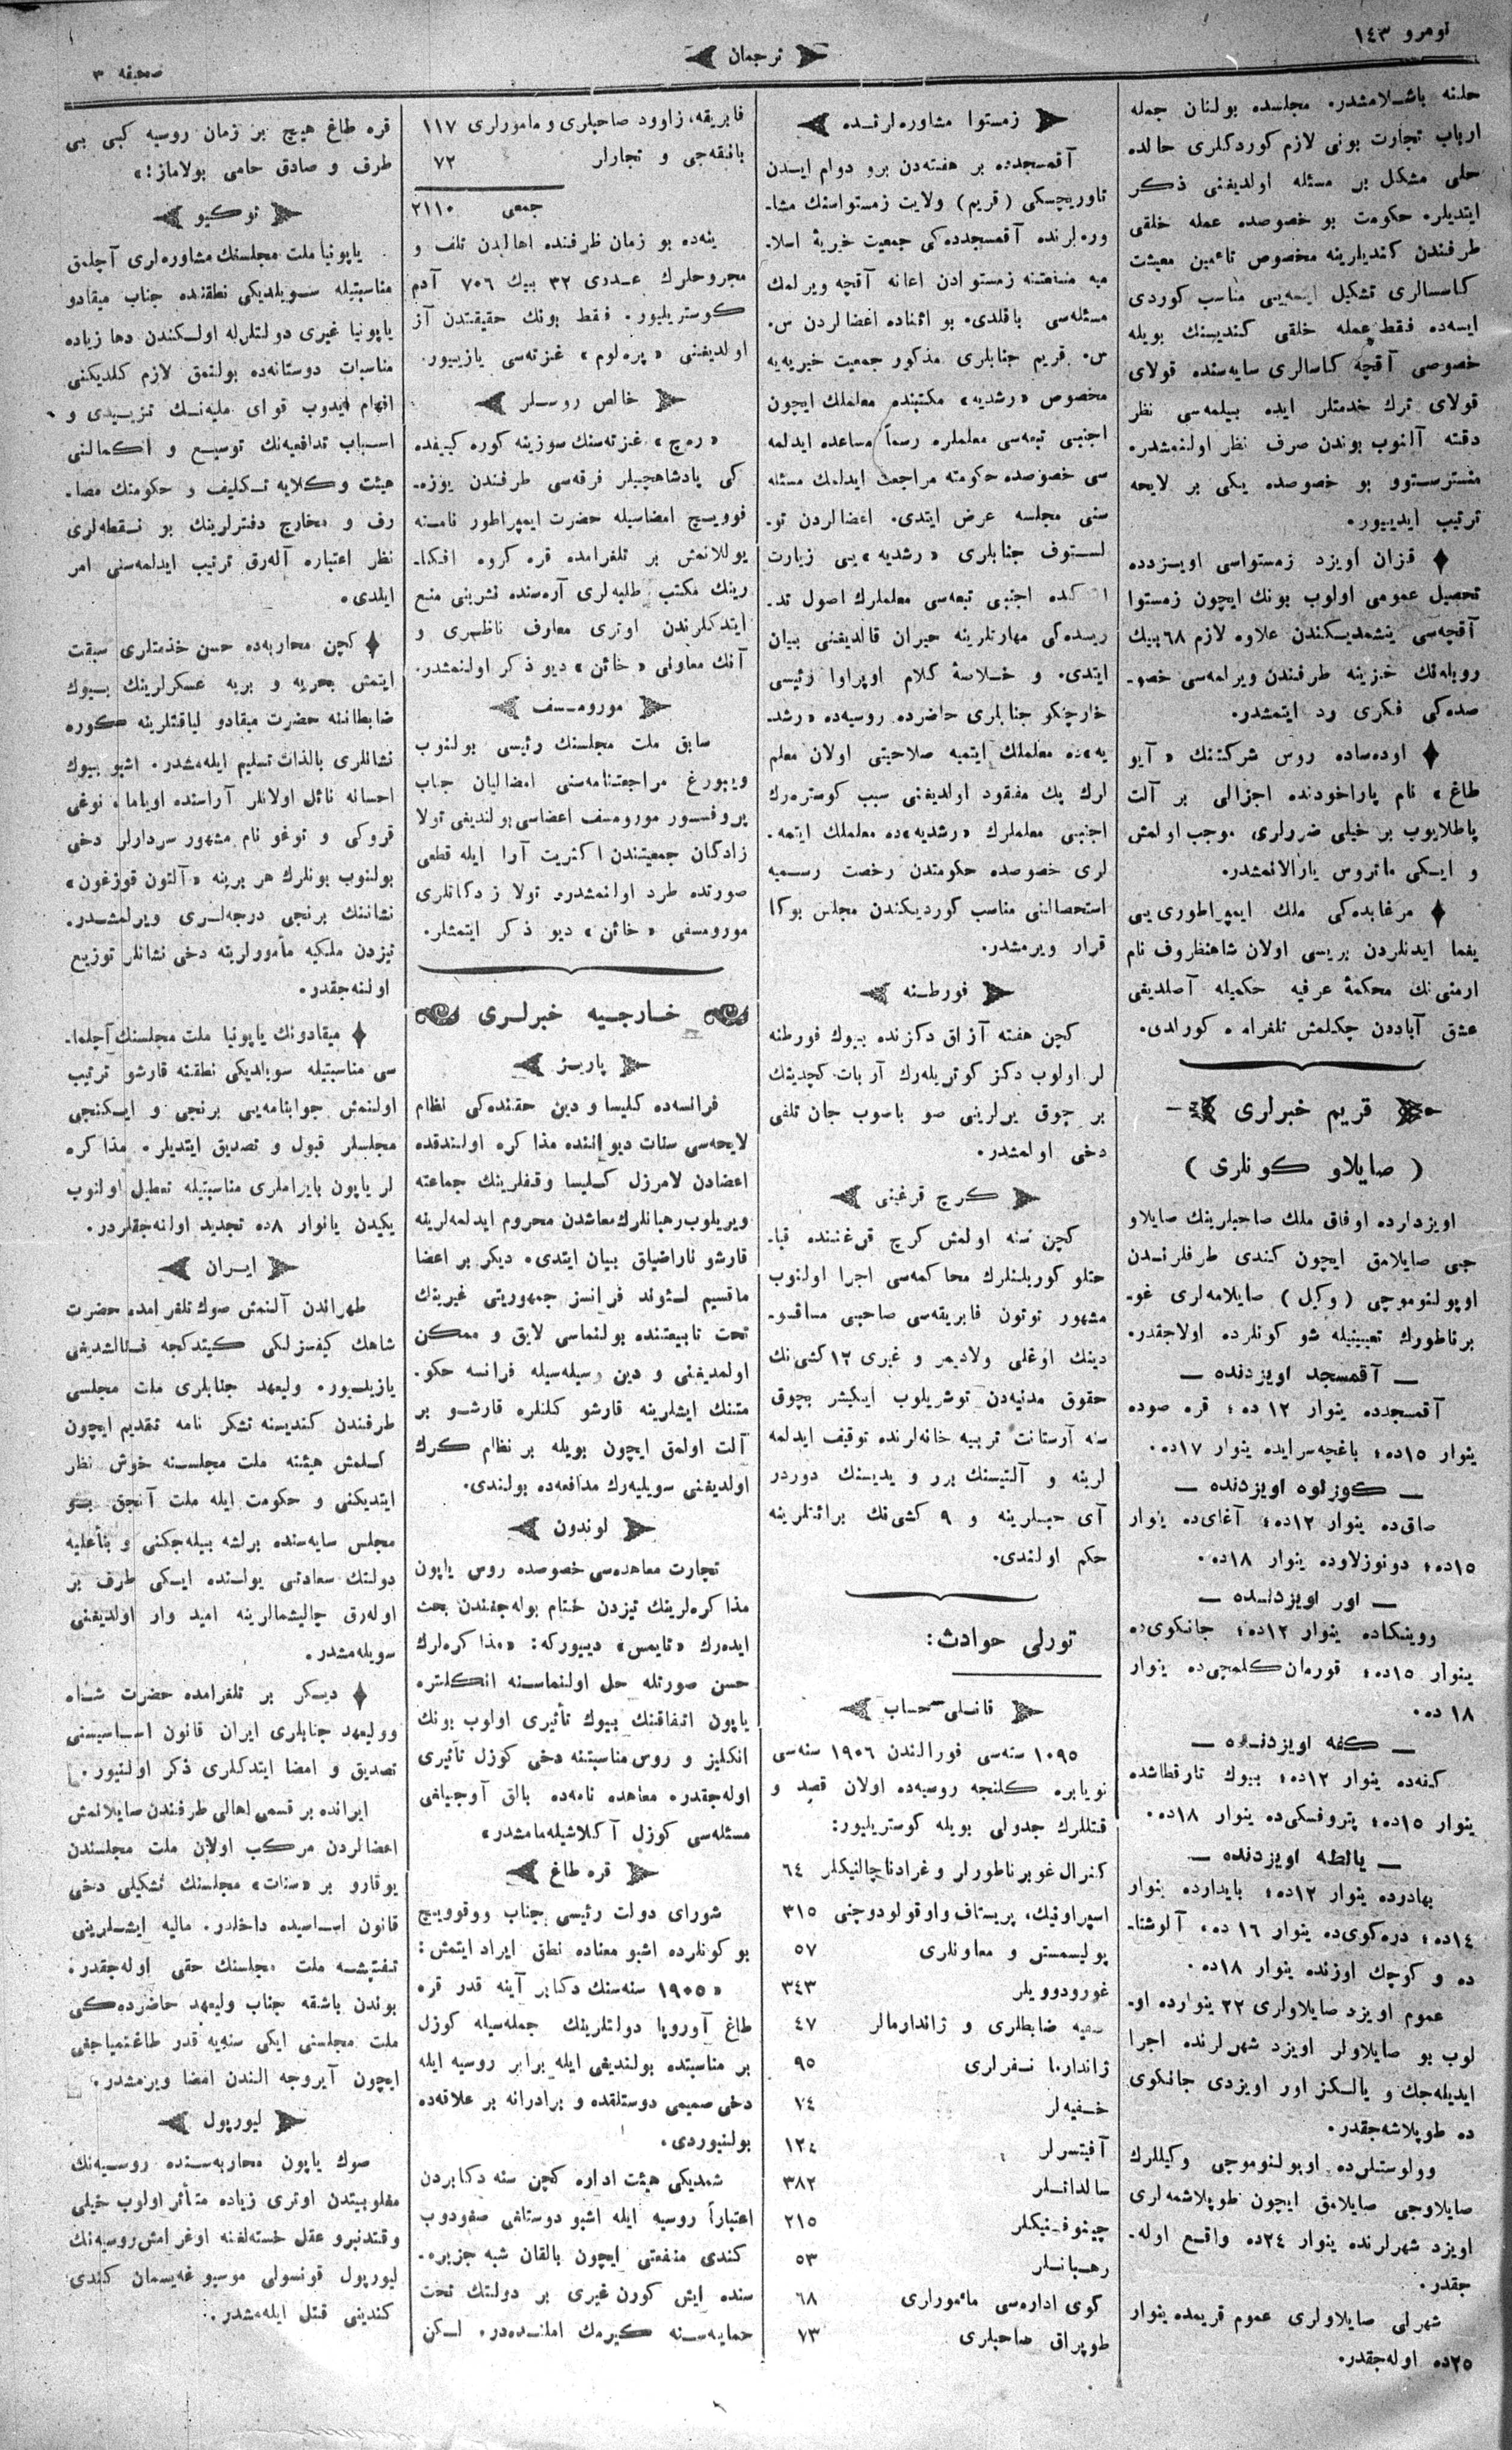 نومرو ١٤٣
ترجمان
صحيفه ٣
حلنه باشلامشدر. مجلسده بولنان جمله
ارباب تجارت بونی لازم كوردكلری حالده
حلی مشكل بر مسئله اولديغنی ذكر
ايتديلر. حكومت بو خصوصده عمله خلقی
طرفندن كنديلرينه مخصوص تاءمين معيشت
كاسسالری تشكيل ايتمه‌يی مناسب كوردی
ايسه‌ده فقط عمله خلقی كنديسنك بويله
خصوصی آقچه كاسالری سايه‌سنده قولای
قولای ترك خدمتلر ايده بيلمه‌سی نظر
دقته آلنوب بوندن صرف نظر اولنمشدر.
منسترستوو بو خصوصده يكی بر لايحه
ترتيب ايدييور.
قزان اويزد زمستواسی اويزدده
تحصيل عمومی اولوب بونك ايچون زمستوا
آقچه‌سی يتشمديكندن علاوه لازم ٦٨ بيك
روبله‌نك خزينه طرفندن ويرلمه‌سی خصو-
صده‌كی فكری رد ايتمشدر.
اوده‌ساده روس شركتنك «آيو
طاغ» نام پاراخودنده اجزالی بر آلت
پاطلايوب بر خيلی ضررلری موجب اولمش
و ايكی ماتروس يارالانمشدر.
مرغابده‌كی ملك ايمپراطوری‌يی
يغما ايدنلردن بريسی اولان شاهنظروف نام
ارمنی‌نك محكمهٔ عرفيه حكميله آصلديغی
عشق آباددن چكلمش تلغرامده كورلدی.
قريم خبرلری
( صايلاو كونلری )
اويزدلرده اوفاق ملك صاحبلرينك صايلاو
جی صايلامق ايچون كندی طرفلرندن
اوپولنوموچی (وكيل) صايلامه‌لری غو-
برناطورك تعيينيله شو كونلرده اولاجقدر.
— آقمسجد اويزدنده —
آقمسجدده ينوار ١٢ ده؛ قره صوده
ينوار ١٥ده؛ باغچه‌سرايده ينوار ١٧ده.
— كوزلوه اويزدنده —
صاق‌ده ينوار ١٢ده؛ آغای‌ده ينوار
١٥ده؛ دونوزلاوده ينوار ١٨ده.
— اور اويزدنده —
ووينكاده ينوار ١٢ده؛ جانكوی‌ده
ينوار ١٥ده؛ قورمان كلمچی‌ده ينوار
١٨ ده.
— كفه اويزدنده —
كفه‌ده ينوار ١٢ده؛ بيوك تارقطاشده
ينوار ١٥ده؛ پتروفسكی‌ده ينوار ١٨ده.
— يالطه اويزدنده —
بهادرده ينوار ١٢ده؛ بايدارده ينوار
١٤ده؛ دره‌كوی‌ده ينوار ١٦ ده، آلوشتا-
ده و كوچك اوزنده ينوار ١٨ده.
عموم اويزد صايلاولری ٢٢ ينوارده او-
لوب بو صايلاولر اويزد شهرلرنده اجرا
ايديله‌جك و يالكز اور اويزدی جانكوی
ده طوپلاشه‌جقدر.
وولوستلرده اوپولنوموچی وكيللرك
صايلاوجی صايلامق ايچون طوپلاشمه‌لری
اويزد شهرلرنده ينوار ٢٤ده واقع اوله-
جقدر.
شهرلی صايلاولری عموم قريمده ينوار
٢٥ده اوله‌جقدر.
زمستوا مشاوره‌لرنده
آقمسجدده بر هفته‌دن برو دوام ايدن
تاوريچسكی (قريم) ولايت زمستواسنك مشا-
وره‌لرنده آقمسجدده‌كی جمعيت خيريهٔ اسلا-
ميه منفعتنه زمستوادن اعانه آقچه ويرلمك
مسئله‌سی باقلدی. بو اثناده اعضالردن س.
س. قريم جنابلری مذكور جمعيت خيريه‌يه
مخصوص «رشديه» مكتبنده معلملك ايچون
اجنبی تبعه‌سی معلملره رسماً مساعده ايدلمه
سی خصوصده حكومته مراجعت ايدلمك مسئله
سنی مجلسه عرض ايتدی. اعضالردن تو-
لستوف جنابلری «رشديه»يی زيارت
ايتدكده اجنبی تبعه‌سی معلملرك اصول تد-
ريسده‌كی مهارتلرينه حيران قالديغنی بيان
ايتدی. و خلاصهٔ كلام اوپراوا رئيسی
خارچنكو جنابلری حاضرده روسيه‌ده «رشد-
يه»ده معلملك ايتمه صلاحيتی اولان معلم
لرك پك مفقود اولديغنی سبب كوستره‌رك
اجنبی معلملرك «رشديه»ده معلملك ايتمه-
لری خصوصده حكومتدن رخصت رسميه
استحصالنی مناسب كورديكندن مجلس بوكا
قرار ويرمشدر.
فورطنه
كچن هفته آزاق دكزنده بيوك فورطنه
لر اولوب دكز كوتريله‌رك آربات كچيدينك
بر چوق يرلرينی صو باصوب جان تلفی
دخی اولمشدر.
كرچ قرغينی
كچن سنه اولمش كرچ قرغننده قبا-
حتلو كورىلنلرك محاكمه‌سی اجرا اولنوب
مشهور توتون فابريقه‌سی صاحبی مساقسو-
دينك اوغلی ولاديمر و غيری ١٢ كشی‌نك
حقوق مدنيه‌دن توشريلوب ايكيشر بچوق
سنه آرستانت تربيه خانه‌لرنده توقيف ايدلمه
لرينه و آلتيسنك برر و يديسنك دوردر
آی حبسلرينه و ٩ كشی‌نك برائتلرينه
حكم اولندی.
تورلی حوادث:
قانلی حساب
١٠٩٥ سنه‌سی فورالندن ١٩٠٦ سنه‌سی
نويابره كلنجه روسيه‌ده اولان قصد و
قتللرك جدولی بويله كوستريليور:
كنرال غوبرناطورلر و غرادناچالنيكلر ٦٤
اسپراونيك، پريستاف واوقولودوچنی ٣١٥
پوليسمستر و معاونلری ٥٧
غورودوويلر ٣٤٣
خفيه ضابطلری و ژاندارمالر ٤٧
ژاندارما نفرلری ٩٥
خفيه‌لر ٧٤
آفيتسرلر ١٢٤
سالداتلر ٣٨٢
چينوفنيكلر ٢١٥
رهبانلر ٥٣
كوی اداره‌سی ماءمورلری ٦٨
طوپراق صاحبلری ٧٣
فابريقه، زاوود صاحبلری و مامورلری ١١٧
بانقه‌جی و تجارلر ٧٢
جمعی ٢١١٠
ينه‌ده بو زمان ظرفنده اهاليدن تلف و
مجروحلرك عددی ٣٢ بيك ٧٠٦ آدم
كوستريليور. فقط بونك حقيقتدن آز
اولديغنی «پره‌لوم» غزته‌سی يازييور.
خالص روسلر
«ره‌چ» غزته‌سنك سوزينه كوره كييفده
كی پادشاهچيلر فرقه‌سی طرفندن يوزه-
فوويچ امضاسيله حضرت ايمپراطور نامنه
يوللانمش بر تلغرامده قره كروه افكا-
رينك مكتب طلبه‌لری آره‌سنده نشرينی منع
ايتدكلرندن اوتری معارف ناظری و
آنك معاونی «خائن» ديو ذكر اولنمشدر.
مورومسف
سابق ملت مجلسنك رئيسی بولنوب
ويبورغ مراجعتنامه‌سنی امضاليان جناب
پروفسور مورومسف اعضاسی بولنديغی تولا
زادكان جمعيتندن اكثريت آرا ايله قطعی
صورتده طرد اولنمشدر. تولا زدكانلری
مورومسفی «خائن» ديو ذكر ايتمشلر.
خارجيه خبرلری
پاريز
فرانسه‌ده كليسا و دين حقنده‌كی نظام
لايحه‌سی سنات ديواننده مذاكره اولندقده
اعضادن لامرزل كليسا وقفلرينك جماعته
ويريلوب رهبانلرك معاشدن محروم ايدلمه‌لرينه
قارشو ناراضيلق بيان ايتدی. ديكر بر اعضا
ماقسيم لئوند فرانسز جمهوريتی غيرينك
تحت تابيعتنده بولنماسی لايق و ممكن
اولمديغنی و دين وسيله‌سيله فرانسه حكو-
متنك ايشلرينه قارشو كلنلره قارشو بر
آلت اولمق ايچون بويله بر نظام كرك
اولديغنی سويليه‌رك مدافعه‌ده بولندی.
لوندون
تجارت معاهده‌سی خصوصده روس ياپون
مذاكره‌لرينك تيزدن ختام بوله‌جغندن بحث
ايده‌رك «تايمس» دييوركه: «مذاكره‌لرك
حسن صورتله حل اولنماسنه انكلتره
ياپون اتفاقنك بيوك تأثيری اولوب بونك
انكليز و روس مناسبتنه دخی كوزل تأثيری
اوله‌جقدر. معاهده نامه‌ده بالق آوجيلغی
مسئله‌سی كوزل آكلاشيله‌مامشدر»
قره طاغ
شورای دولت رئيسی جناب ووقوويچ
بو كونلرده اشبو معناده نطق ايراد ايتمش:
«١٩٠٥ سنه‌سنك دكابر آينه قدر قره
طاغ آوروپا دولتلرينك جمله‌سيله كوزل
بر مناسبتده بولنديغی ايله برابر روسيه ايله
دخی صميمی دوستلقده و برادرانه بر علاقه‌ده
بولنيوردی.
شمديكی هيئت اداره كچن سنه دكابردن
اعتباراً روسيه ايله اشبو دوستلغی صغودوب
كندی منفعتی ايچون بالقان شبه جزيره-
سنده ايش كورن غيری بر دولتك تحت
حمايه‌سنه كيرمك املنده‌در. لكن
قره طاغ هيچ بر زمان روسيه كبی بی
طرف و صادق حامی بولاماز!»
توكيو
ياپونيا ملت مجلسنك مشاوره‌لری آچلمق
مناسبتيله سويلديكی نطقنده جناب ميقادو
ياپونيا غيری دولتلرله اولكندن دها زياده
مناسبات دوستانه‌ده بولنمق لازم كلديكنی
افهام ايدوب قوای مليه‌نك تزييدی و
اسباب تدافعيه‌نك توسيع و اكمالنی
هيئت وكلايه تكليف و حكومتك مصا-
رف و مخارج دفترلرينك بو نقطه‌لری
نظر اعتباره آله‌رق ترتيب ايدلمه‌سنی امر
ايلدی.
كچن محاربه‌ده حسن خذمتلری سبقت
ايتمش بحريه و بريه عسكرلرينك بيوك
ضابطانه حضرت ميقادو لياقتلرينه كوره
نشانلری بالذات تسليم ايله‌مشدر. اشبو بيوك
احسانه نائل اولانلر آراسنده اوياما، نوغی
قروكی و توغو نام مشهور سردارلر دخی
بولنوب بونلرك هر برينه «آلتون قوزغون»
نشاننك برنجی درجه‌لری ويرلمشدر.
تيزدن ملكيه مأمورلرينه دخی نشانلر توزيع
اولنه‌جقدر.
ميقادونك ياپونيا ملت مجلسنك آچلما-
سی مناسبتيله سويلديكی نطقنه قارشو ترتيب
اولنمش جوابنامه‌يی برنجی و ايكنجی
مجلسلر قبول و تصديق ايتديلر. مذاكره
لر ياپون بايراملری مناسبتيله تعطيل اولنوب
يكيدن يانوار ٨ده تجديد اولنه‌جقلردر.
ايران
طهراندن آلنمش صوك تلغرامده حضرت
شاهك كيفسزلكی كيتدكجه فنالشديغی
يازيليور. وليعهد جنابلری ملت مجلسی
طرفندن كنديسنه تشكر نامه تقديم ايچون
كلمش هيئته ملت مجلسنه خوش نظر
ايتديكنی و حكومت ايله ملت آنجق بو
مجلس سايه‌سنده برلشه بيله‌جكنی و بناًعليه
دولتك سعادتی يولنده ايكی طرف بر
اوله‌رق چاليشمالرينه اميد وار اولديغنی
سويله‌مشدر.
ديكر بر تلغرامده حضرت شاه
ووليعهد جنابلری ايران قانون اساسيسنی
تصديق و امضا ايتدكلری ذكر اولنيور.
ايرانده بر قسمی اهالی طرفندن صايلانمش
اعضالردن مركب اولان ملت مجلسندن
يوقارو بر «سنات» مجلسنك تشكيلی دخی
قانون اساسيده داخلدر. ماليه ايشلرينی
تفتيشه ملت مجلسنك حقی اوله‌جقدر.
بوندن باشقه جناب وليعهد حاضرده‌كی
ملت مجلسنی ايكی سنه‌يه قدر طاغتمياجغی
ايچون آيروجه الندن امضا ويرمشدر.
ليورپول
صوك ياپون محاربه‌سنده روسيه‌نك
مغلوبيتدن اوتری زياده متأثر اولوب خيلی
وقتدنبرو عقل خسته‌لغنه اوغرامش روسيه‌نك
ليورپول قونسولی موسيو غه‌يسمان كندی
كندينی قتل ايله‌مشدر.